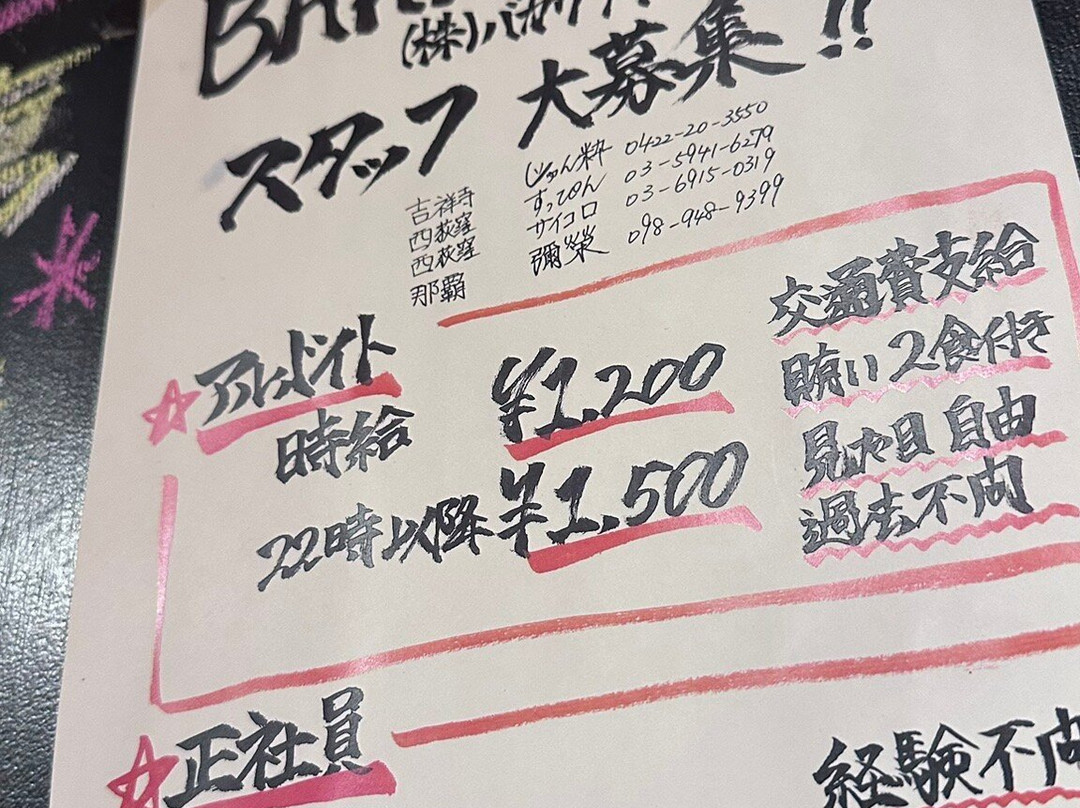 (株)バカ
スタッフ 大募集!!
吉祥寺 じゅん粋 0422-20-3550
西荻窪 すっぴん 03-5941-6279
西荻窪 サイコロ 03-6915-0319
那覇 彌榮 098-948-9399
アルバイト
時給 ¥1,200
22時以降 ¥1,500
交通費支給
賄い2食付き
見た目 自由
過去不問
正社員
経験不問